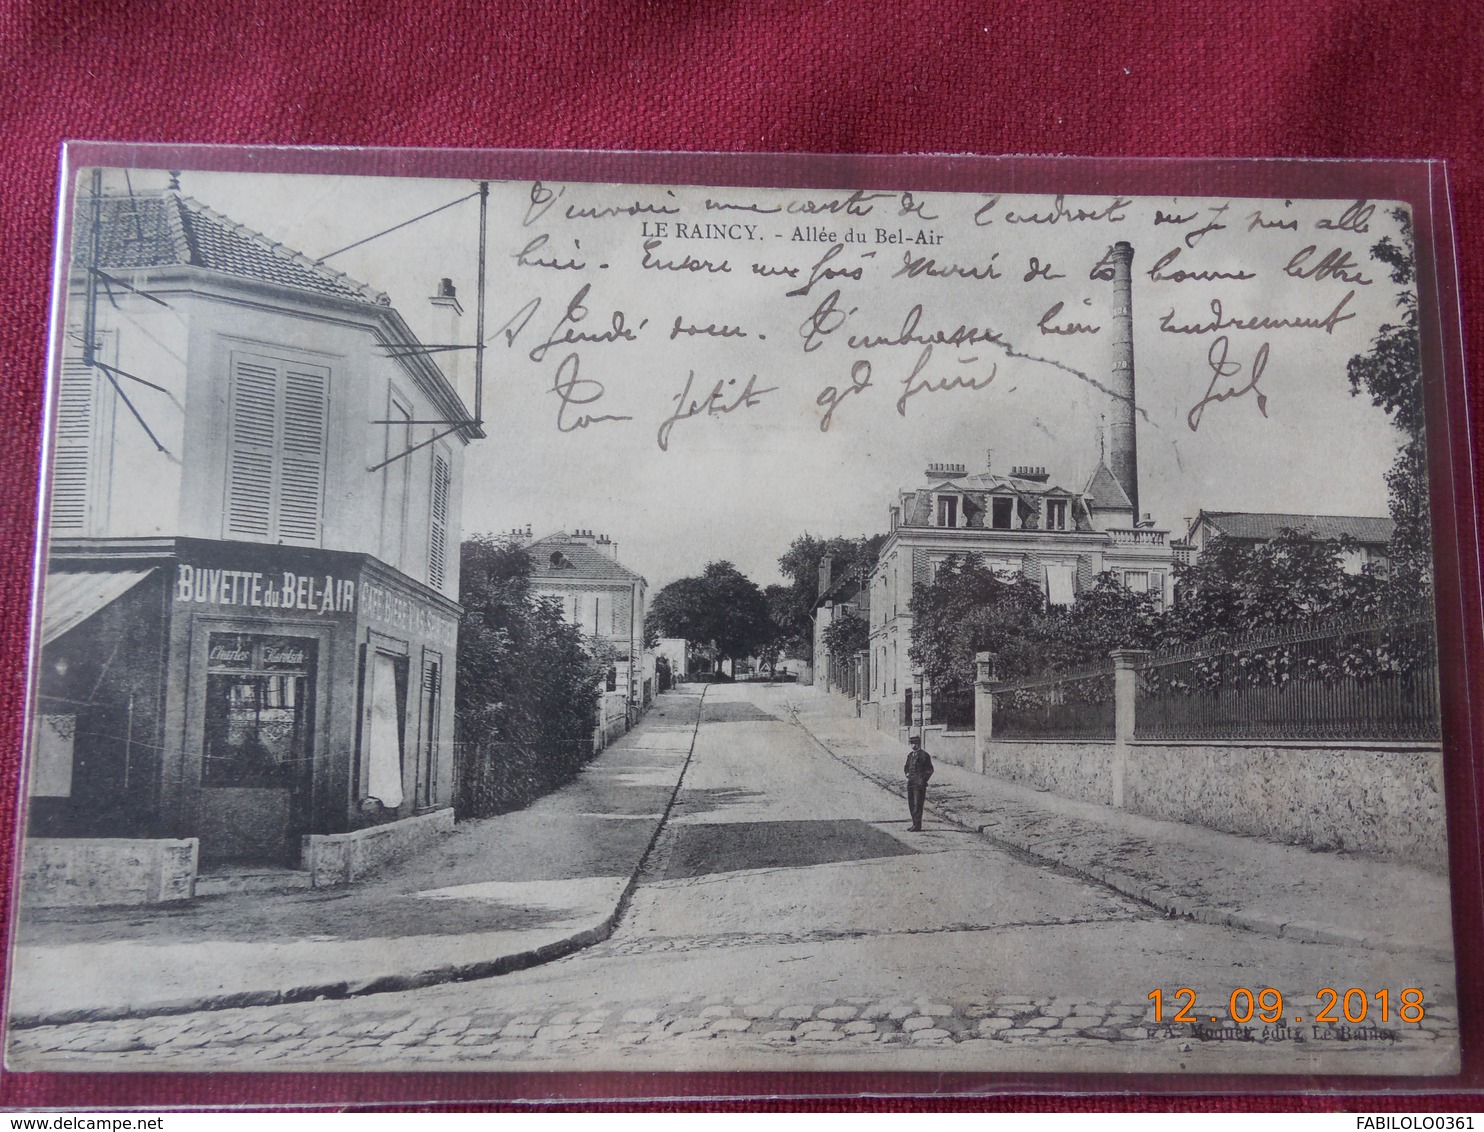 T'envoie une carte de l'endroit où Je suis allé
LE RAINCY. - Allée du Bel-Air
hier. Encore une fois Merci de ta bonne lettre
A Jeudi soeur. T'embrasse bien tendrement
Ton petit gd frère. Jul
BUVETTE du BEL-AIR
CAFÉ BIÈRE VINS
Charles
12.09.2018
A. Moquet, édit., Le Raincy
FABILOLO0361